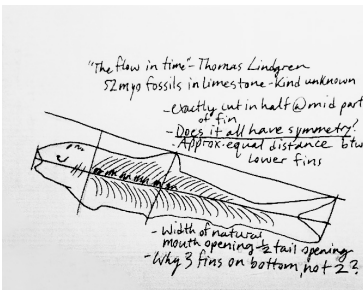 "The flow in time"- Thomas Lindgren
52myo fossils in limestone - Kind unknown
- exactly cut in half @ mid part
of fin
- Does it all have symmetry?
- Approx. equal distance btw
lower fins
- Width of natural
mouth opening ½ tail opening
- Why 3 fins on bottom, not 2?